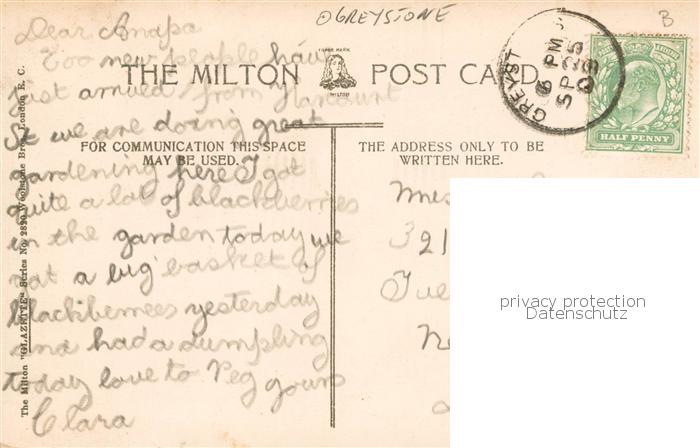 GREYSTONE
B
Dear
Too new people have
THE MILTON
TRADE MARK
MILTON
POST CARD
GREYST
6 PM
SP 25
08
HALF PENNY
just arrived from Harcourt
St we are doing great
FOR COMMUNICATION THIS SPACE
MAY BE USED.
gardening here I got
quite a lot of blackberries
in the garden today we
a big basket of
blackberrees yesterday
and had a dumpling
today love to Peg yours
Clara
THE ADDRESS ONLY TO BE
WRITTEN HERE.
321
The Milton "GLAZETTE" Series No. 2820 Woolstone Bros., London E. C.
privacy protection
Datenschutz